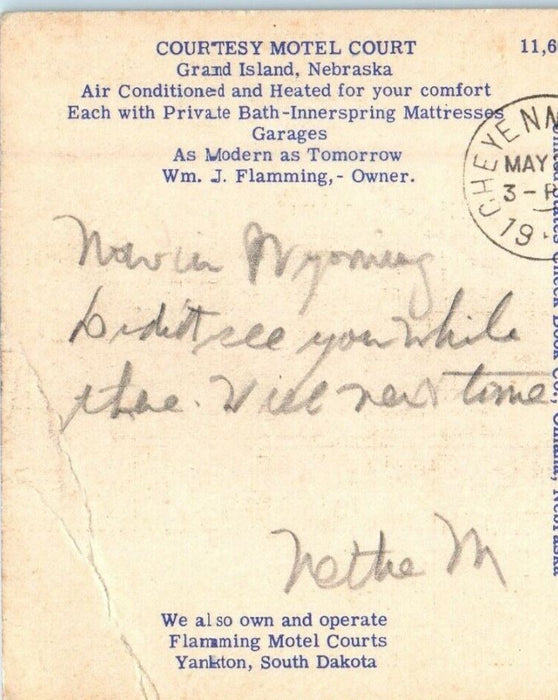 COURTESY MOTEL COURT
11,6
Grand Island, Nebraska
Air Conditioned and Heated for your comfort
Each with Private Bath-Innerspring Mattresses
Garages
As Modern as Tomorrow
Wm. J. Flamming,- Owner.
CHEYENN
MAY
3-P
19
Now in Wyoming
Didn't see you while
there. Will next time
M
We also own and operate
Flamming Motel Courts
Yankton, South Dakota